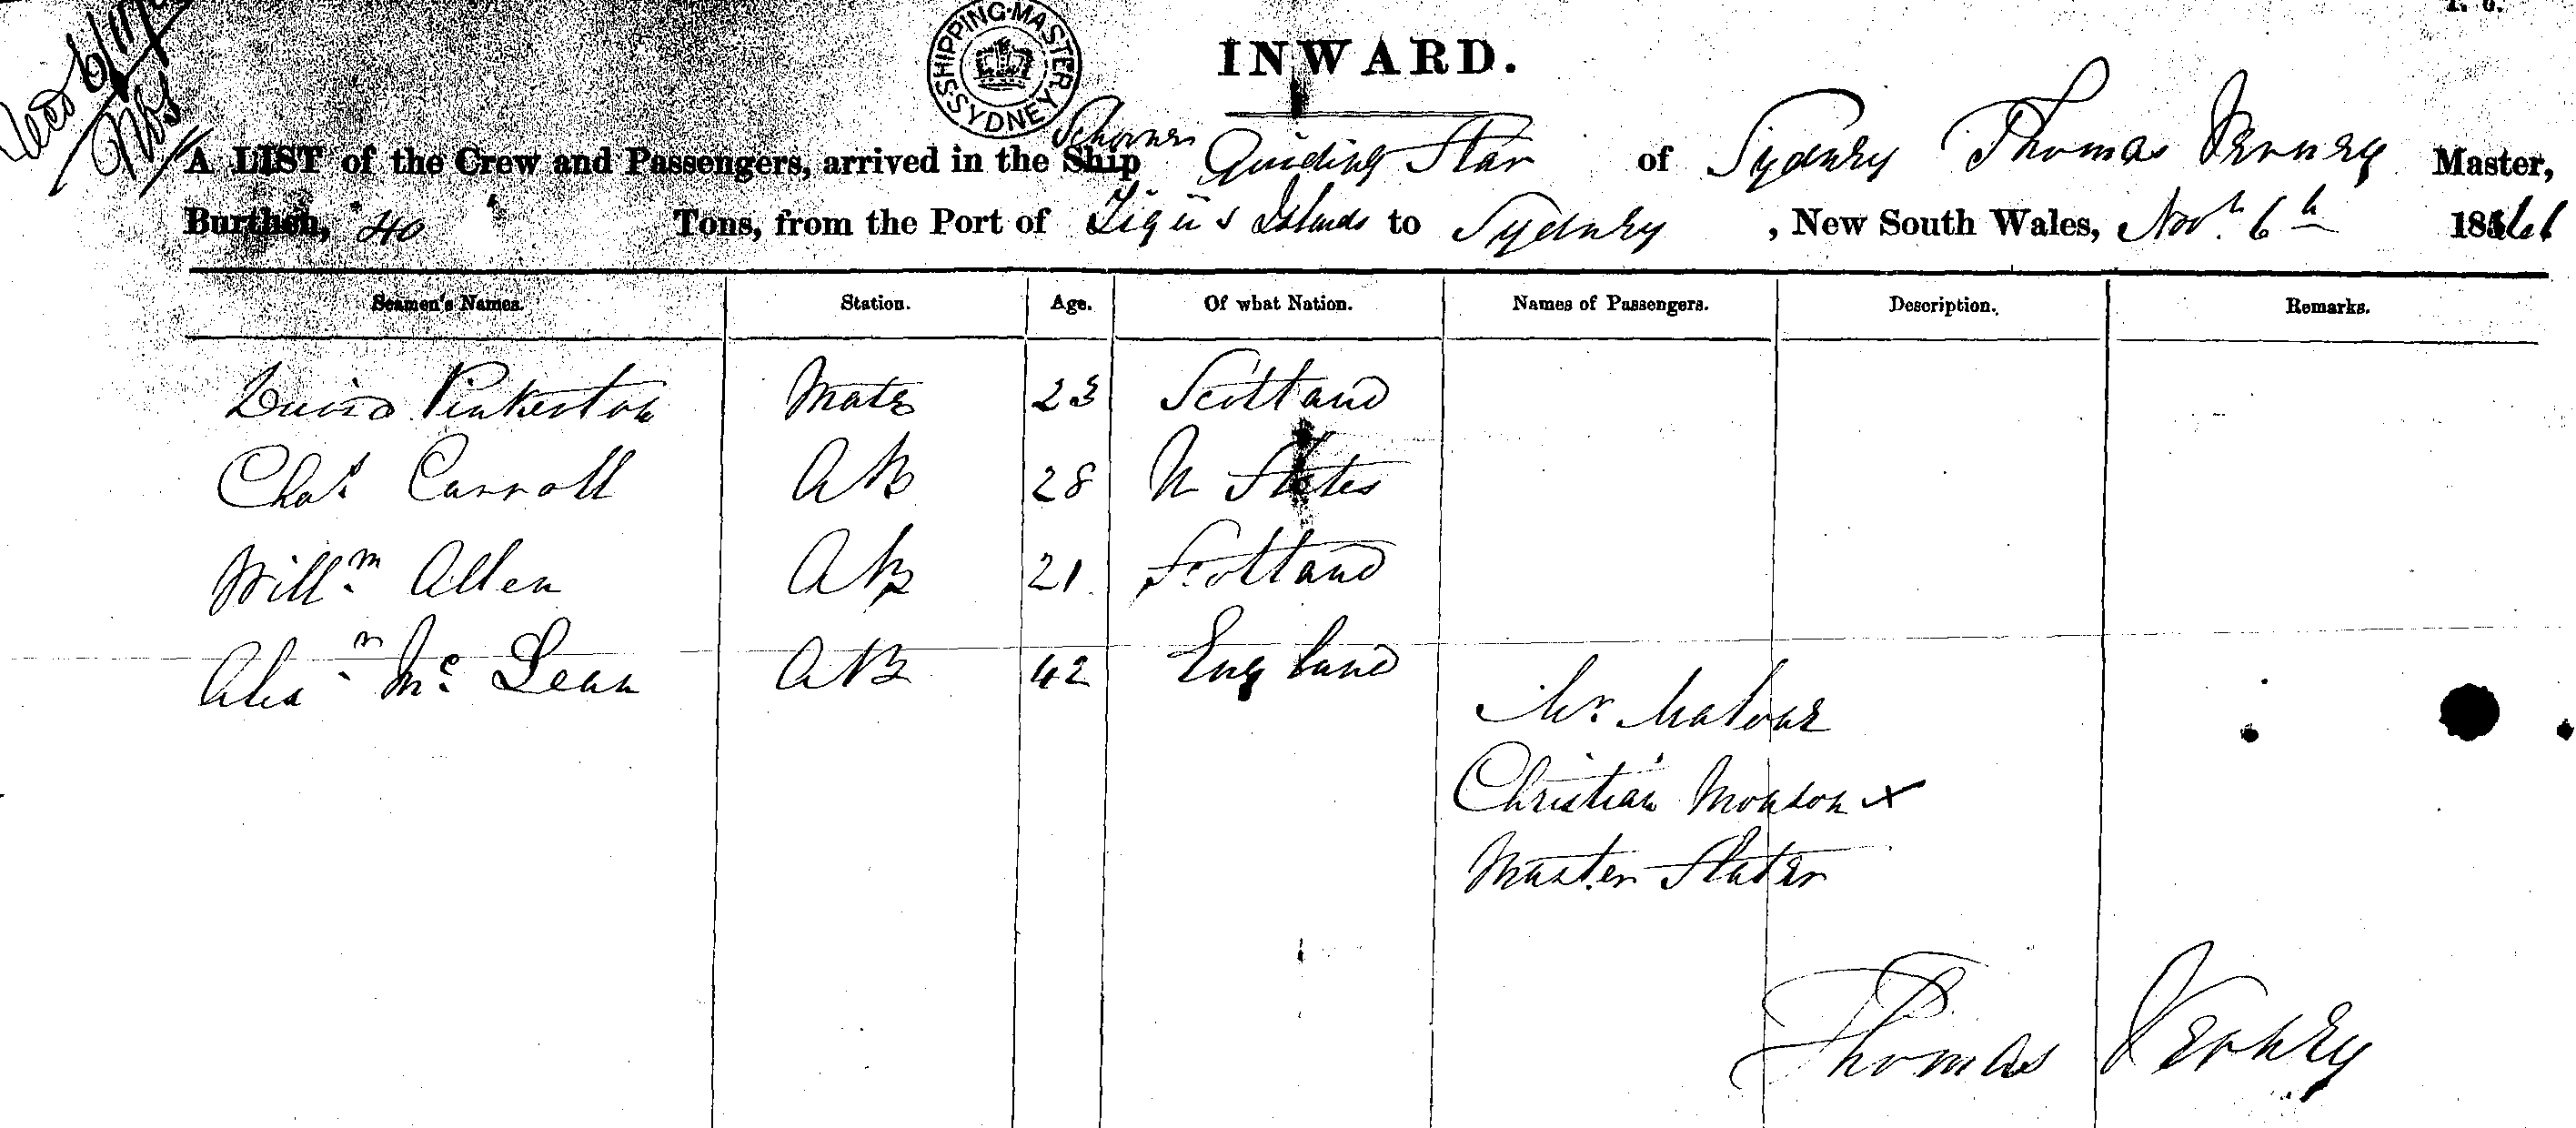 INWARD.
SHIPPING MASTER SYDNEY
Schooner
A LIST of the Crew and Passengers, arrived in the Ship Guiding Star of Sydney Thomas Verney Master,
Burthen, 40 Tons, from the Port of Islands to Sydney, New South Wales, Novr. 6th 1861
Seamen's Names. Station. Age. Of what Nation. Names of Passengers. Description. Remarks.
David Pinkerton Mate 23 Scotland
Chas. Carroll AB 28 U States
Willm. Allen AB 21 Scotland
Alexr. Mc. Lean AB 42 England
Mr. Malone
Christian Monson x
Master Slater
Thomas Verney